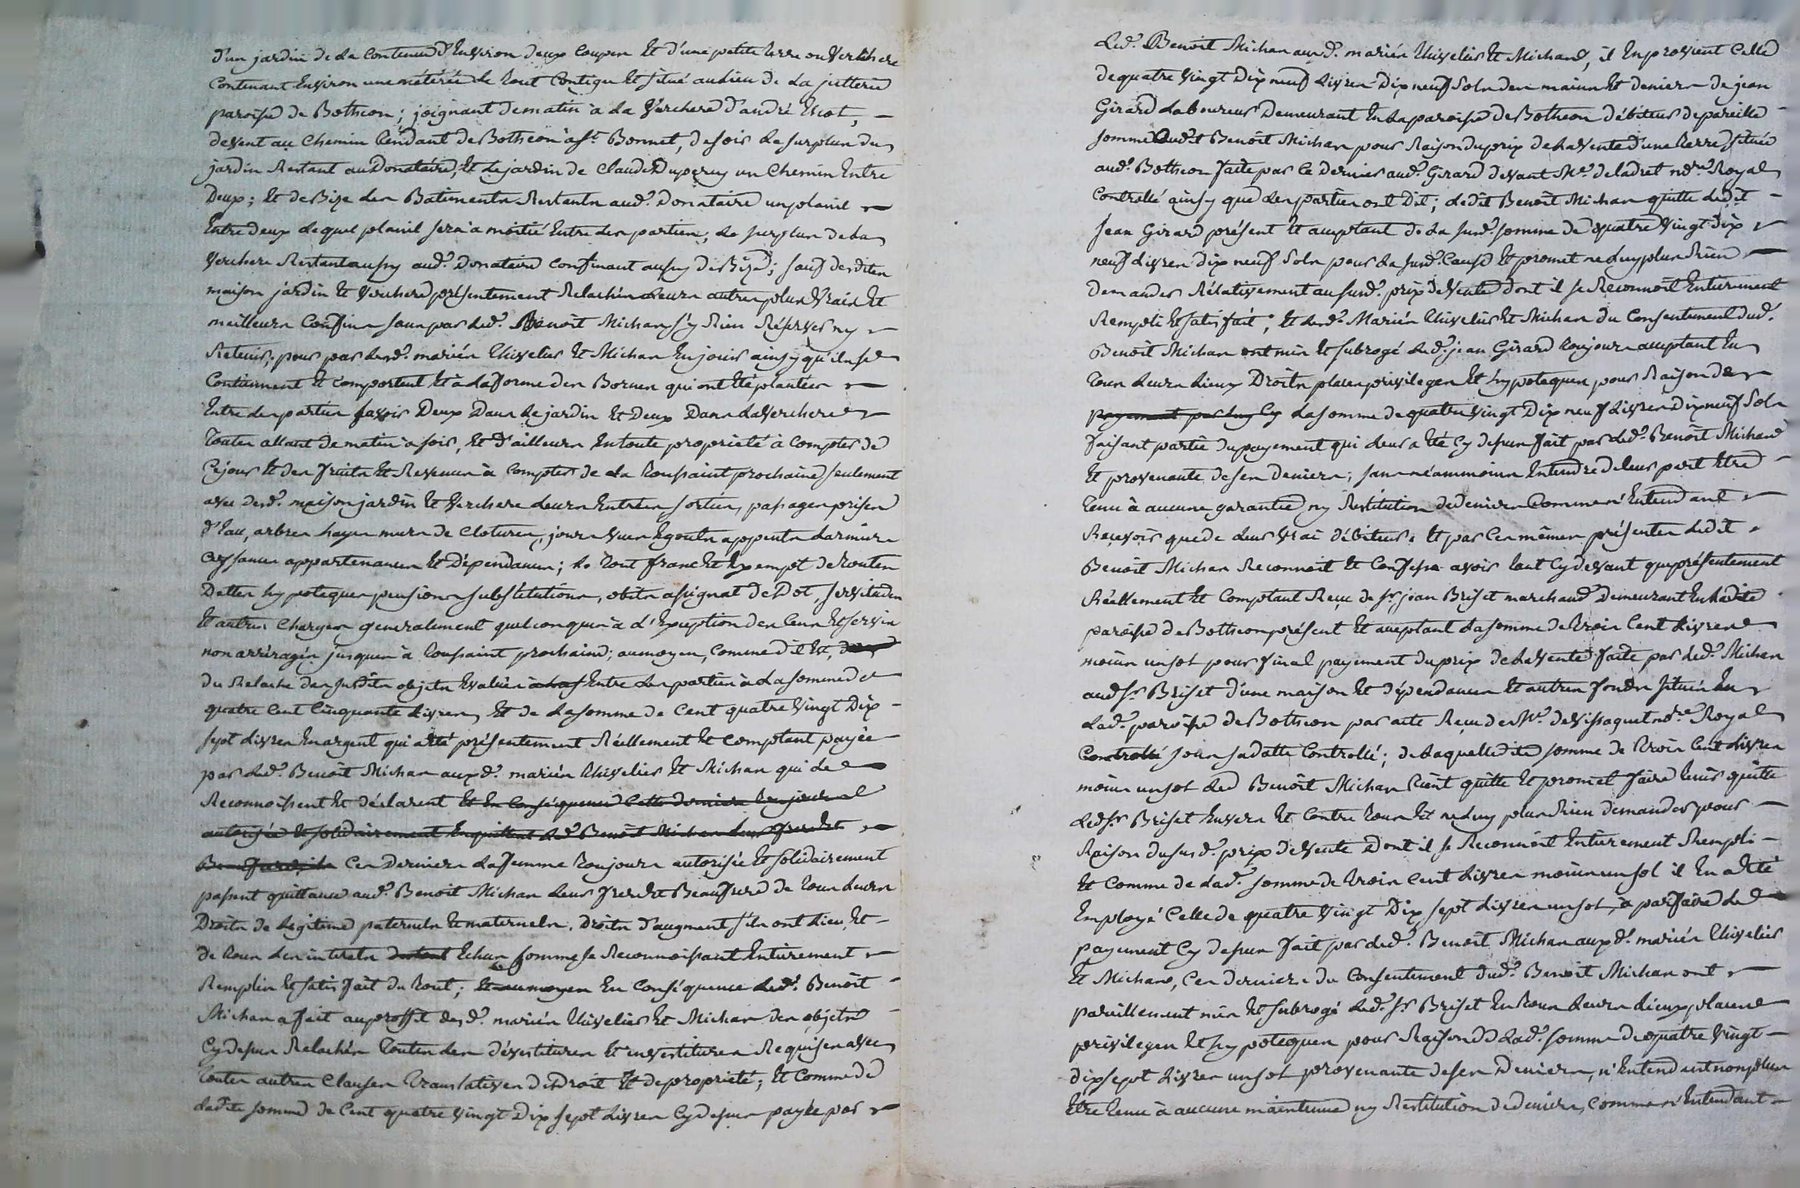 d'un jardin de la contenue d'Environ deux coupes Et d'une petite terre ou Verchere
Contenant Environ une meterée Le tout Contigu Et situé au lieu de la
paroisse de Bothéon; joignant de matin à la Verchere d'andré
de vent au Chemin tendant de Bothéon à st. Bonnet, de soir le surplus du
jardin Restant au Donataire, Et le jardin de Claude Duperay un Chemin Entre
Deux; Et de Bize les Batiments Restants aud. Donataire un planil
Entre deux lequel planil sera à moitié Entre les parties, le surplus de la
Verchere Restant aussy aud. Donataire confinant aussy de Bize; sauf desdites
maison jardin Et Verchere présentement Relachés leurs autres plus Vrais Et
meilleurs Confins sans par led. Benoit Michan s'y Rien Réserver ny
Retenir; pour par lesd. mariés Chivelier Et Michan En jouir ainsy qu'ils se
Contiennent Et comportent Et à la forme des Bornes qui ont Eté plantées
Entre les parties savoir Deux Dans le jardin Et Deux Dans la Verchere
toutes allant de matin à soir, Et d'ailleurs En toute propriété à compter de
Ce jour Et des fruits Et Revenus à compter de la Toussaint prochaine seulement
avec lesd. maison jardin Et Verchere leurs Entrées sorties, passages prises
d'Eau, arbres hayes murs de Cloture, jours Vues Egouts appents larmiers
aysances appartenances Et Dépendances; le tout franc Et Exempt de toutes
Dettes hypoteques pensions substitutions, obits assignat de Dot, servitudes
Et autres Charges generalement quelconques à l'Exception des Cens Et servis
non arréragés jusques à toussaint prochaine; au moyen, comme dit Est,
du Relache des susdits objets Evalués Entre les parties à la somme de
quatre Cent Cinquante Livres, Et de la somme de Cent quatre Vingt Dix
sept Livres En argent qui a Eté présentement Réellement Et comptant payée
par led. Benoit Michan auxd. mariés Chivelier Et Michan qui le
Reconnoissent Et déclarent Et En Conséquence Cette derniere toujours
autorisée Et solidairement Enquittent led. Benoit Michan leur frere Et
Beaufrere Ces Derniers la femme toujours autorisée Et solidairement
passent quittance aud. Benoit Michan leur frere Et Beaufrere de tous leurs
Droits de Légitime paternels Et maternels, Droits d'augment s'ils ont Lieu, Et
de tous les interets Echus somme se Reconnoissant Entierement
Remplis Et satisfait du tout; Et au moyen En Conséquence led. Benoit
Michan a fait au proffit desd. mariés Chivelier Et Michan des objets
Cydessus Relachés toutes les dévestitures Et investitures Requises avec
toutes autres Clauses translatives de Droit Et de propriété; Et Comme de
ladite somme de Cent quatre Vingt Dix sept Livres Cydessus payée par
Led. Benoit Michan auxd. mariés Chivelier Et Michand, il En provient Celle
de quatre Vingt Dix neuf Livres Dix neuf Sols des mains Et deniers de jean
Girard Laboureur Demeurant En la paroisse de Bothéon Débiteur de pareille
somme Audit Benoit Michan pour Raison du prix de la Vente d'une terre située
aud. Bothéon faite par Ce Dernier aud. Girard devant Me. deladret nore. Royal
Contrôllé ainsy que les parties ont Dit; ledit Benoit Michan quitte ledit
Jean Girard présent Et acceptant de la susd. somme de quatre Vingt dix
neuf Livres dix neuf Sols pour la susd. Cause Et promet ne luy plus Rien
demander Rélativement au susd. prix de Vente dont il se Reconnoit Entierement
Rempli Et satisfait; Et lesd. Mariés Chivelier Et Michan du Consentement dud.
Benoit Michan ont mis Et subrogé led. jean Girard toujours acceptant En
tous leurs Lieux Droits places privileges Et hypoteques, pour Raison de
payement par luy Cy la somme de quatre Vingt Dix neuf Livres Dix neuf Sols
faisant partie du payement qui leur a Eté Cy dessus fait par led. Benoit Michand
Et provenante de ses deniers; sans néanmoins Entendre de leur part Etre
tenu à aucune garantie ny Restitution de deniers Comme n'Entendant
Recevoir que de leur Vrai débiteur. Et par Ces mêmes présentes ledit
Benoit Michan Reconnoit Et Confesse avoir tant Cy devant que présentement
Réellement Et Comptant Reçu de sr. jean Briset marchand Demeurant En ladite
paroisse de Bothéon présent Et acceptant la somme de Trois Cent Livres
moins un sol pour final payement du prix de la Vente faite par led. Michan
aud. sr. Briset d'une maison Et dépendances Et autres fonds situés En
lad. paroisse de Bothéon par acte Reçu de Me. devissaguet nore. Royal
Controllé sous sa datte Controllé; de laquelle dite somme de Trois Cent Livres
moins un sol led Benoit Michan tient quitte Et promet faire tenir quitte
led sr. Briset Envers Et Contre tous Et ne luy plus Rien demander pour
Raison du susd. prix de Vente Dont il se Reconnoit Entierement Rempli
Et Comme de lad. somme de Trois Cent Livres moins un sol il En a Eté
Employé Celle de quatre Vingt Dix sept Livres un sol, à parfaire le
payement Cy dessus fait par led. Benoit Michan auxd. mariés Chivelier
Et Michand, Ces derniers du Consentement dud. Benoit Michan ont
pareillement mis Et subrogé led. sr. Briset En tous leurs Lieux places
privileges Et hypoteques pour Raison de lad. somme de quatre Vingt
dix sept Livres un sol provenante de ses Deniers, n'Entendant non plus
Etre tenu à aucune maintenue ny Restitution de deniers, Comme n'Entendant